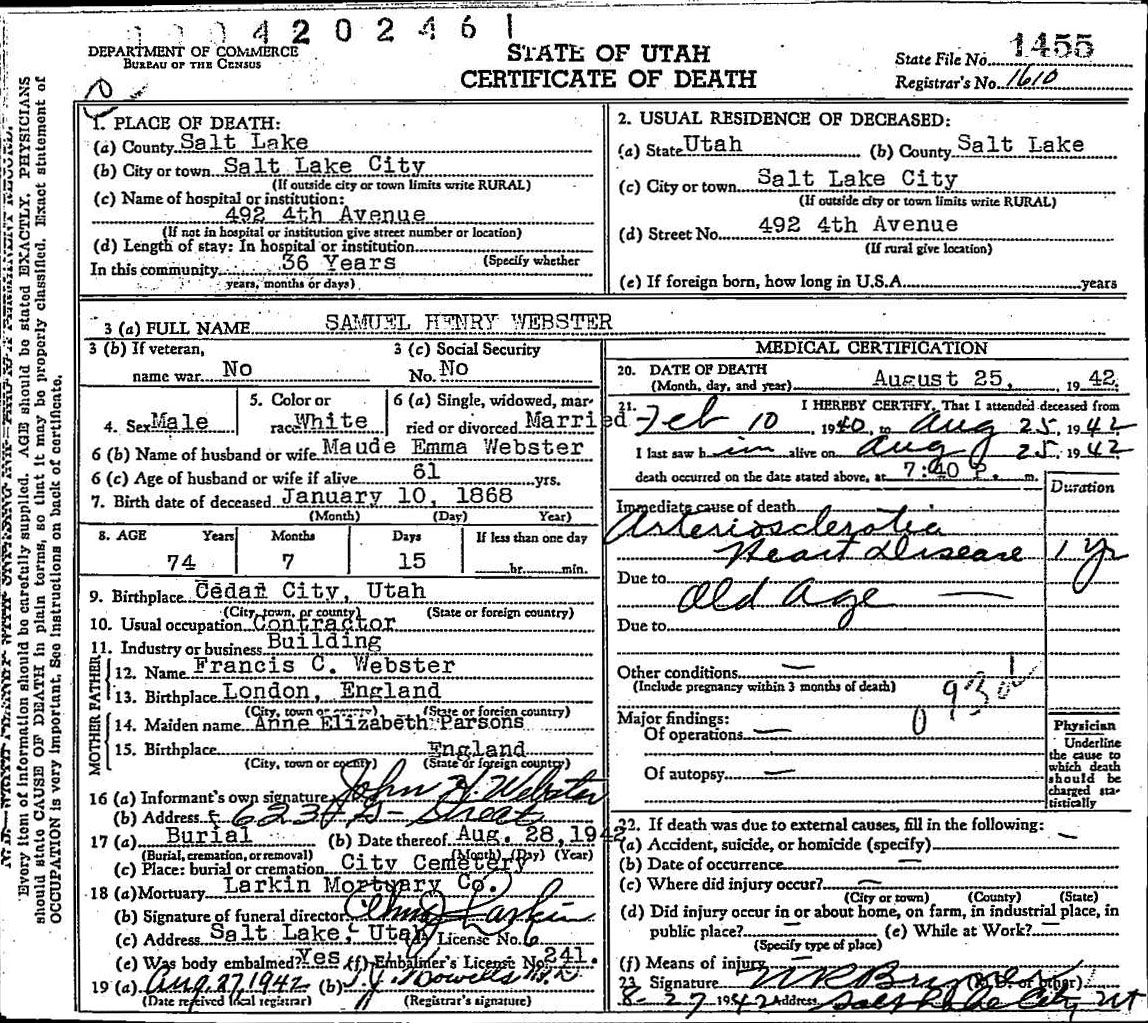 4 2 0 2 4 6 1
DEPARTMENT OF COMMERCE
BUREAU OF THE CENSUS
STATE OF UTAH
CERTIFICATE OF DEATH
State File No. 1455
Registrar's No. 1610
Every item of information should be carefully supplied. AGE should be stated EXACTLY. PHYSICIANS
should state CAUSE OF DEATH in plain terms, so that it may be properly classified. Exact statement of
OCCUPATION is very important. See instructions on back of certificate.
1. PLACE OF DEATH:
(a) County Salt Lake
(b) City or town Salt Lake City
(If outside city or town limits write RURAL)
(c) Name of hospital or institution:
492 4th Avenue
(If not in hospital or institution give street number or location)
(d) Length of stay: In hospital or institution
(Specify whether
In this community 36 Years
years, months or days)
2. USUAL RESIDENCE OF DECEASED:
(a) State Utah (b) County Salt Lake
(c) City or town Salt Lake City
(If outside city or town limits write RURAL)
(d) Street No. 492 4th Avenue
(If rural give location)
(e) If foreign born, how long in U.S.A. years
3 (a) FULL NAME SAMUEL HENRY WEBSTER
3 (b) If veteran,
name war No
3 (c) Social Security
No. No
4. Sex Male
5. Color or
race White
6 (a) Single, widowed, mar-
ried or divorced Married
6 (b) Name of husband or wife Maude Emma Webster
6 (c) Age of husband or wife if alive 61 yrs.
7. Birth date of deceased January 10, 1868
(Month) (Day) Year)
8. AGE Years Months Days If less than one day
74 7 15 hr. min.
9. Birthplace Cedar City, Utah
(City, town, or county) (State or foreign country)
10. Usual occupation Contractor
11. Industry or business Building
FATHER
12. Name Francis C. Webster
13. Birthplace London, England
(City, town or county) (State or foreign country)
MOTHER
14. Maiden name Anne Elizabeth Parsons
15. Birthplace England
(City, town or county) (State or foreign country)
16 (a) Informant's own signature John H. Webster
(b) Address Street
17 (a) Burial (b) Date thereof Aug. 28, 1942
(Burial, cremation, or removal) (Month) (Day) (Year)
(c) Place: burial or cremation City Cemetery
18 (a) Mortuary Larkin Mortuary Co.
(b) Signature of funeral director Larkin
(c) Address Salt Lake, Utah (d) License No. 6
(e) Was body embalmed? Yes (f) Embalmer's License No. 241.
19 (a) Aug. 27, 1942 (b)
(Date received local registrar) (Registrar's signature)
MEDICAL CERTIFICATION
20. DATE OF DEATH
(Month, day, and year) August 25, 1942.
21. I HEREBY CERTIFY, That I attended deceased from
Feb 10, 1940, to Aug 25, 1942
I last saw him alive on Aug 25, 1942
death occurred on the date stated above, at 7:40 P. m.
Duration
Immediate cause of death
Arteriosclerotic
Heart Disease 1 yr
Due to
Old Age —
Due to
Other conditions —
(Include pregnancy within 3 months of death)
93d
Major findings:
Of operations —
Of autopsy —
Physician
Underline
the cause to
which death
should be
charged sta-
tistically
22. If death was due to external causes, fill in the following:
(a) Accident, suicide, or homicide (specify) —
(b) Date of occurrence —
(c) Where did injury occur? —
(City or town) (County) (State)
(d) Did injury occur in or about home, on farm, in industrial place, in
public place? — (e) While at Work? —
(Specify type of place)
(f) Means of injury —
23. Signature (M.D. or other)
8-27-1942 Address Salt Lake City Ut